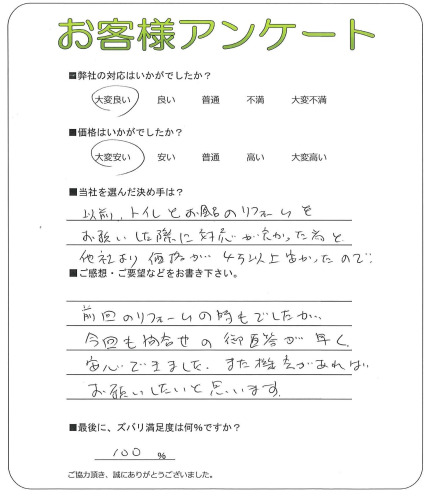 お客様アンケート
■弊社の対応はいかがでしたか？
大変良い 良い 普通 不満 大変不満
■価格はいかがでしたか？
大変安い 安い 普通 高い 大変高い
■当社を選んだ決め手は？
以前、トイレとお風呂のリフォームを
お願いした際に対応が良かった為と
他社より価格が4万以上安かったので
■ご感想・ご要望などをお書き下さい。
前回のリフォームの時もでしたが、
今回も問合せの御返答が早く
安心できました。また機会があれば
お願いしたいと思います。
■最後に、ズバリ満足度は何%ですか？
100 %
ご協力頂き、誠にありがとうございました。